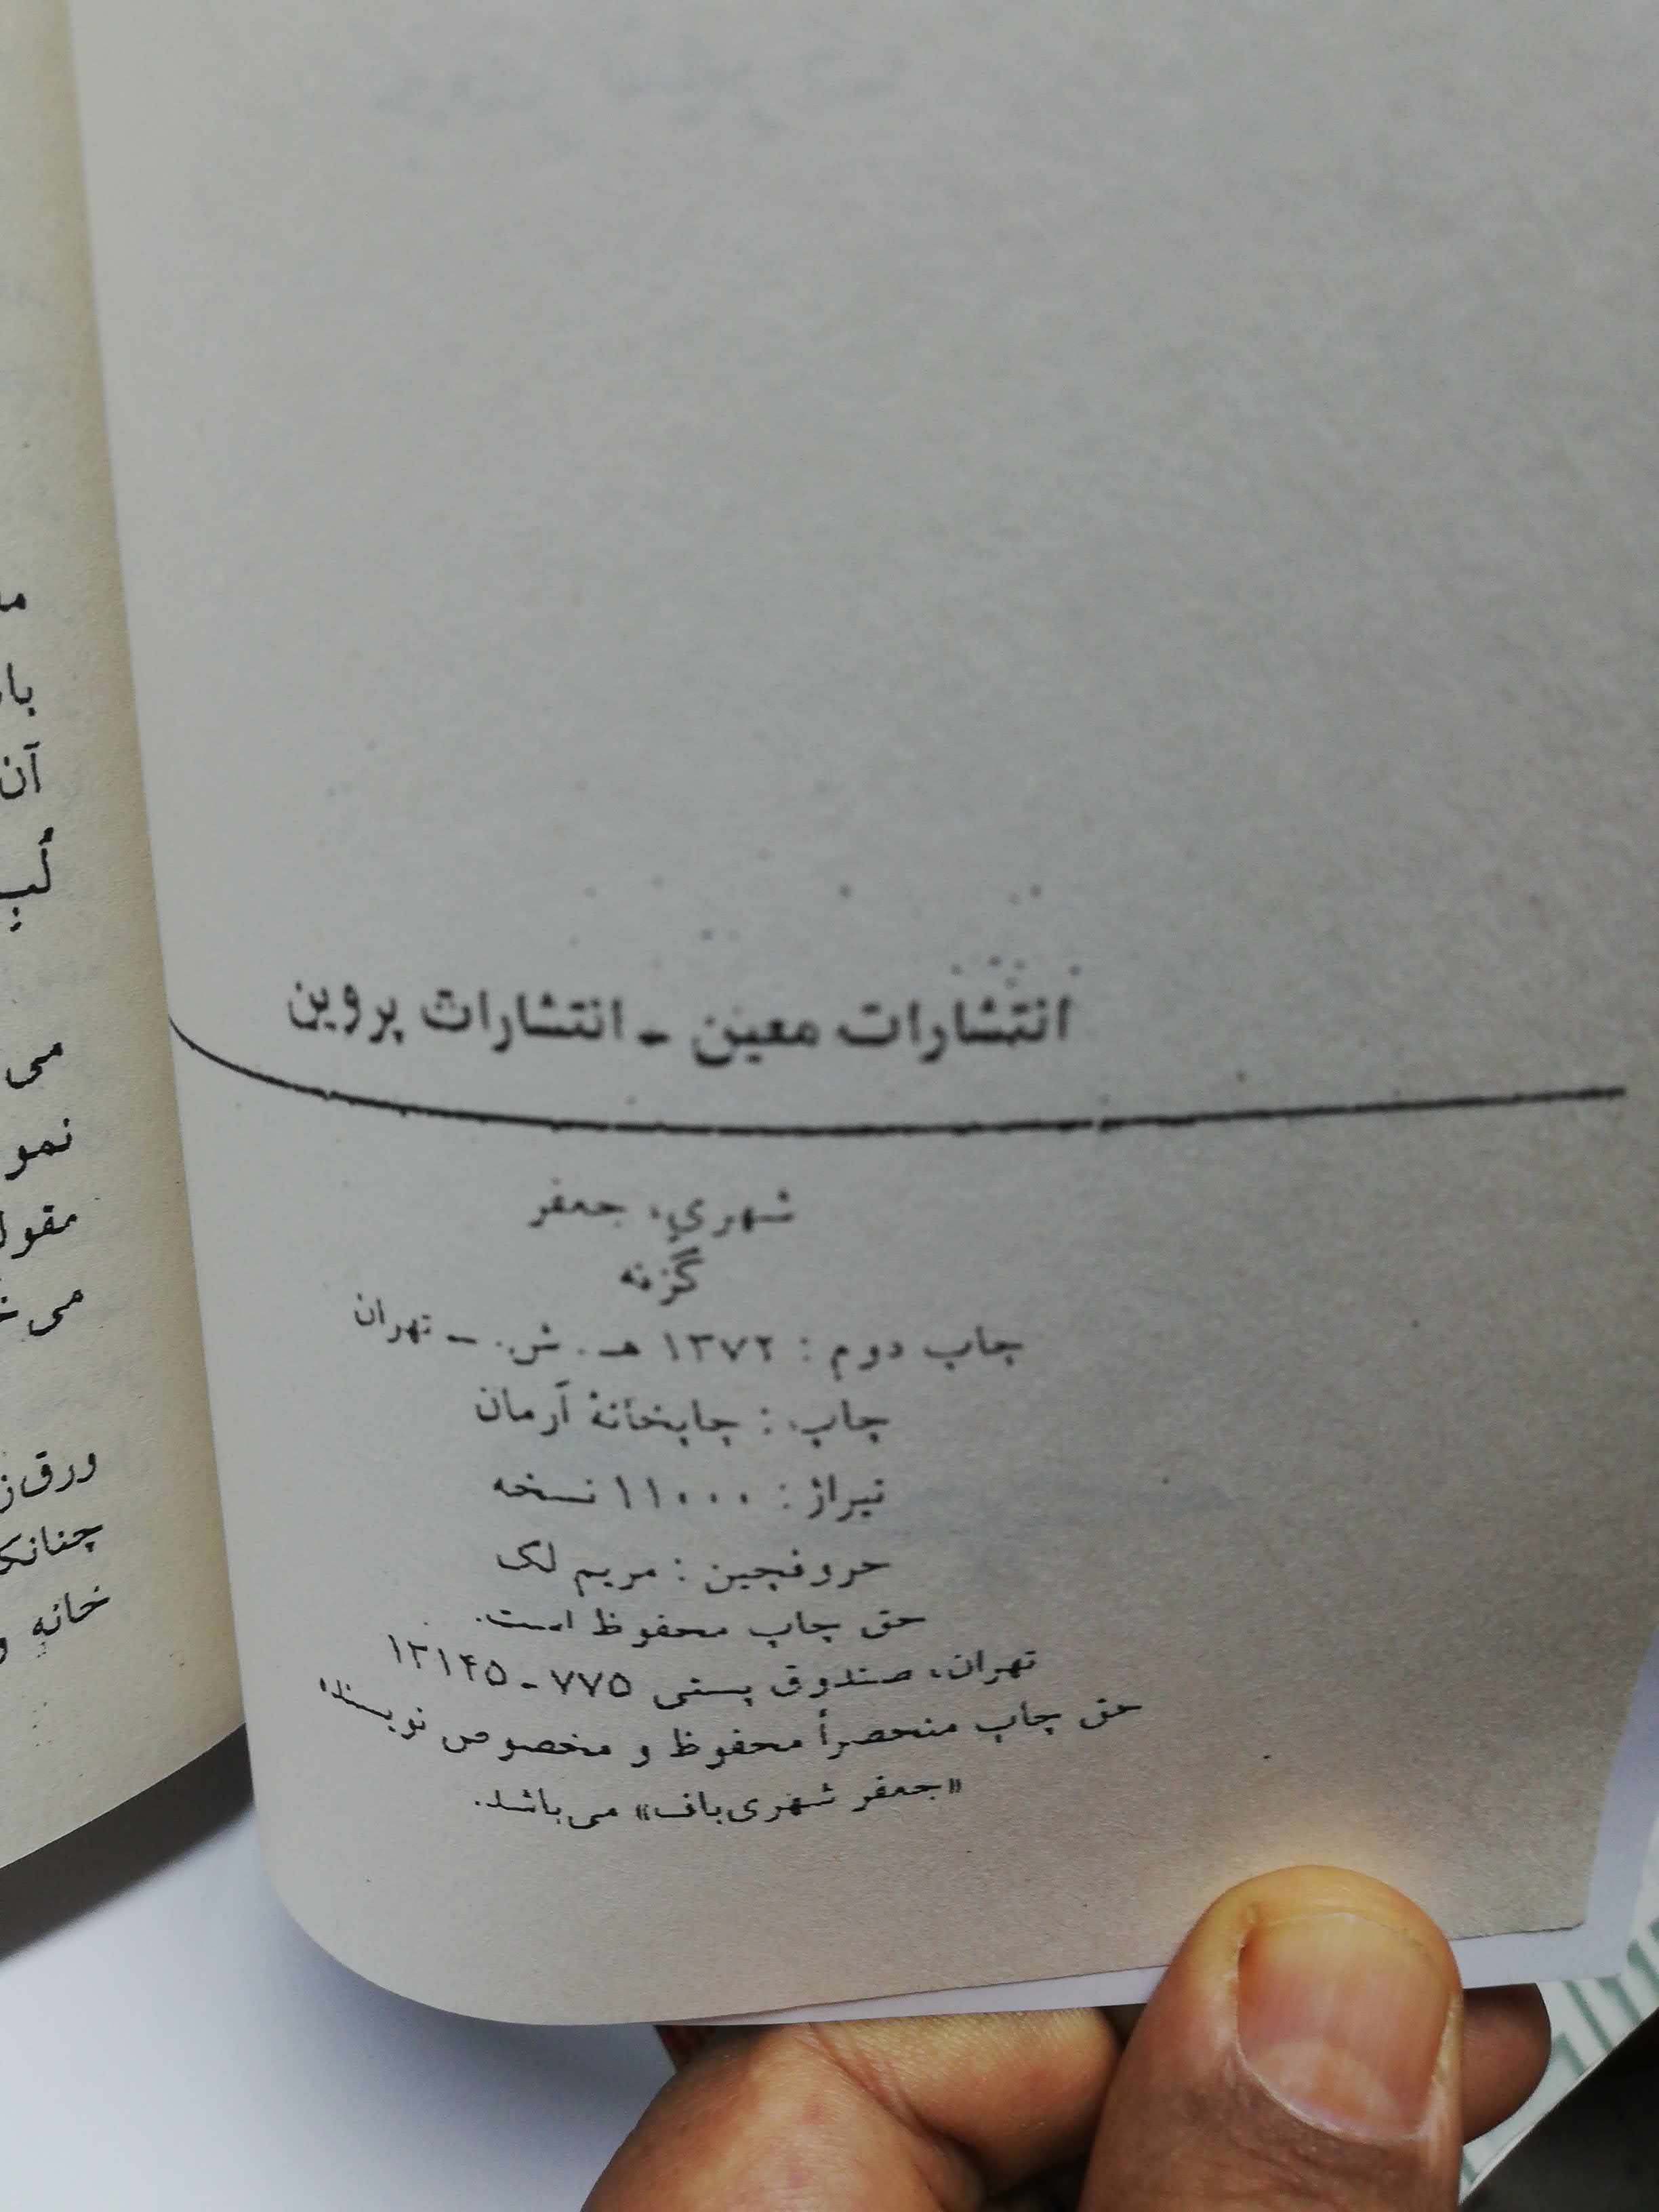 انتشارات معین ـ انتشارات پروین
شهری، جعفر
گزنه
چاپ دوم : ۱۳۷۲ هـ . ش. ـ تهران
چاپ : چاپخانهٔ آرمان
تیراژ : ۱۱۰۰۰ نسخه
حروفچین : مریم لک
حق چاپ محفوظ است.
تهران، صندوق پستی ۷۷۵ ـ ۱۳۱۴۵
حق چاپ منحصراً محفوظ و مخصوص نویسنده
«جعفر شهری‌باف» می‌باشد.
آن
می
نمو
ورق
چنانک
خانه